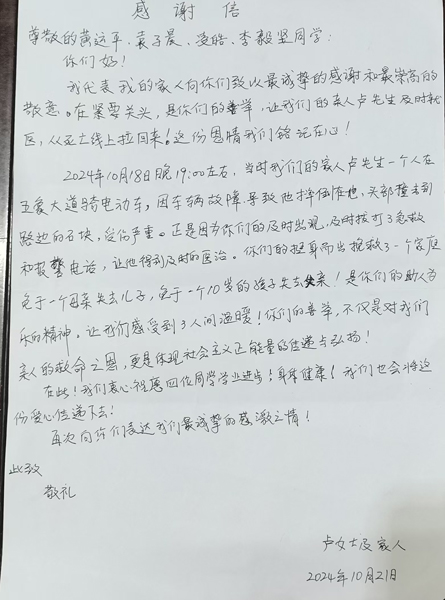 感谢信
尊敬的黄运平、袁子晨、凌皓、李毅坚同学:
你们好!
我代表我的家人向你们致以最诚挚的感谢和最崇高的
敬意。在紧要关头,是你们的善举,让我们的亲人卢先生及时就
医,从死亡线上拉回来!这份恩情我们铭记在心!
2024年10月18日晚19:00左右,当时我们的家人卢先生一个人在
五爱大道骑电动车,因车辆故障导致他摔倒在地,头部撞击到
路边的石块,受伤严重。正是因为你们的及时出现,及时拨打了急救
和报警电话,让他得到及时的医治。你们的挺身而出挽救了一个家庭
免于一个母亲失去儿子,免于一个10岁的孩子失去父亲!是你们的助人为
乐的精神,让我们感受到了人间温暖!你们的善举,不仅是对我们
亲人的救命之恩,更是体现社会主义正能量的传递与弘扬!
在此!我们衷心祝愿四位同学学业进步!身体健康!我们也会将这
份爱心传递下去!
再次向你们表达我们最诚挚的感激之情!
此致
敬礼
卢女士及家人
2024年10月21日